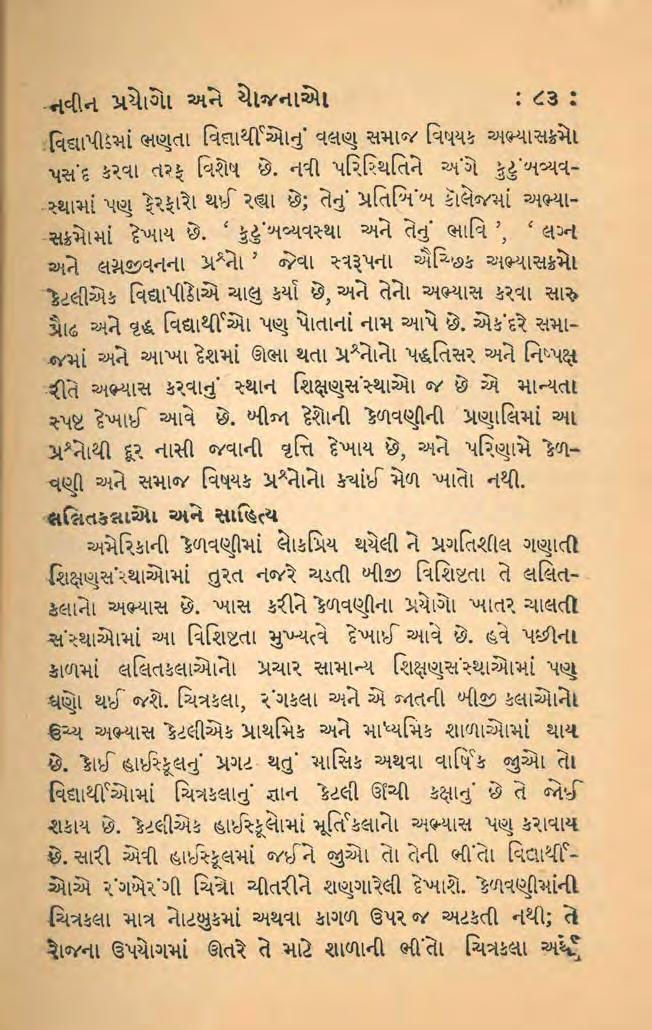 નવીન પ્રયોગો અને યોજનાઓ : ૮૩ :
વિદ્યાપીઠમાં ભણતા વિદ્યાર્થીઓનું વલણ સમાજ વિષયક અભ્યાસક્રમો
પસંદ કરવા તરફ વિશેષ છે. નવી પરિસ્થિતિને અંગે કુટુંબવ્યવ-
સ્થામાં પણ ફેરફારો થઈ રહ્યા છે; તેનું પ્રતિબિંબ કૉલેજમાં અભ્યા-
સક્રમોમાં દેખાય છે. ‘ કુટુંબવ્યવસ્થા અને તેનું ભાવિ ’, ‘ લગ્ન
અને લગ્નજીવનના પ્રશ્નો ’ જેવા સ્વરૂપના ઐચ્છિક અભ્યાસક્રમો
કેટલીએક વિદ્યાપીઠોએ ચાલુ કર્યા છે, અને તેનો અભ્યાસ કરવા સારુ
પ્રૌઢ અને વૃદ્ધ વિદ્યાર્થીઓ પણ પોતાનાં નામ આપે છે. એકંદરે સમા-
જમાં અને આખા દેશમાં ઊભા થતા પ્રશ્નોનો પદ્ધતિસર અને નિષ્પક્ષ
રીતે અભ્યાસ કરવાનું સ્થાન શિક્ષણસંસ્થાઓ જ છે એ માન્યતા
સ્પષ્ટ દેખાઈ આવે છે. બીજા દેશોની કેળવણીની પ્રણાલિમાં આ
પ્રશ્નોથી દૂર નાસી જવાની વૃત્તિ દેખાય છે, અને પરિણામે કેળ-
વણી અને સમાજ વિષયક પ્રશ્નોનો ક્યાંઈ મેળ ખાતો નથી.
લલિતકલાઓ અને સાહિત્ય
અમેરિકાની કેળવણીમાં લોકપ્રિય થયેલી ને પ્રગતિશીલ ગણાતી
શિક્ષણસંસ્થાઓમાં તુરત નજરે ચડતી બીજી વિશિષ્ટતા તે લલિત-
કલાનો અભ્યાસ છે. ખાસ કરીને કેળવણીના પ્રયોગો ખાતર ચાલતી
સંસ્થાઓમાં આ વિશિષ્ટતા મુખ્યત્વે દેખાઈ આવે છે. હવે પછીના
કાળમાં લલિતકલાઓનો પ્રચાર સામાન્ય શિક્ષણસંસ્થાઓમાં પણ
ઘણો થઈ જશે. ચિત્રકલા, રંગકલા અને એ જાતની બીજી કલાઓનો
ઉચ્ચ અભ્યાસ કેટલીએક પ્રાથમિક અને માધ્યમિક શાળાઓમાં થાય
છે. કોઈ હાઈસ્કૂલનું પ્રગટ થતું માસિક અથવા વાર્ષિક જુઓ તો
વિદ્યાર્થીઓમાં ચિત્રકલાનું જ્ઞાન કેટલી ઊંચી કક્ષાનું છે તે જોઈ
શકાય છે. કેટલીએક હાઈસ્કૂલોમાં મૂર્તિકલાનો અભ્યાસ પણ કરાવાય
છે. સારી એવી હાઈસ્કૂલમાં જઈને જુઓ તો તેની ભીંતો વિદ્યાર્થી-
ઓએ રંગબેરંગી ચિત્રો ચીતરીને શણગારેલી દેખાશે. કેળવણીમાંની
ચિત્રકલા માત્ર નોટબુકમાં અથવા કાગળ ઉપર જ અટકતી નથી; તે
રોજના ઉપયોગમાં ઊતરે તે માટે શાળાની ભીંતો ચિત્રકલા અર્થે